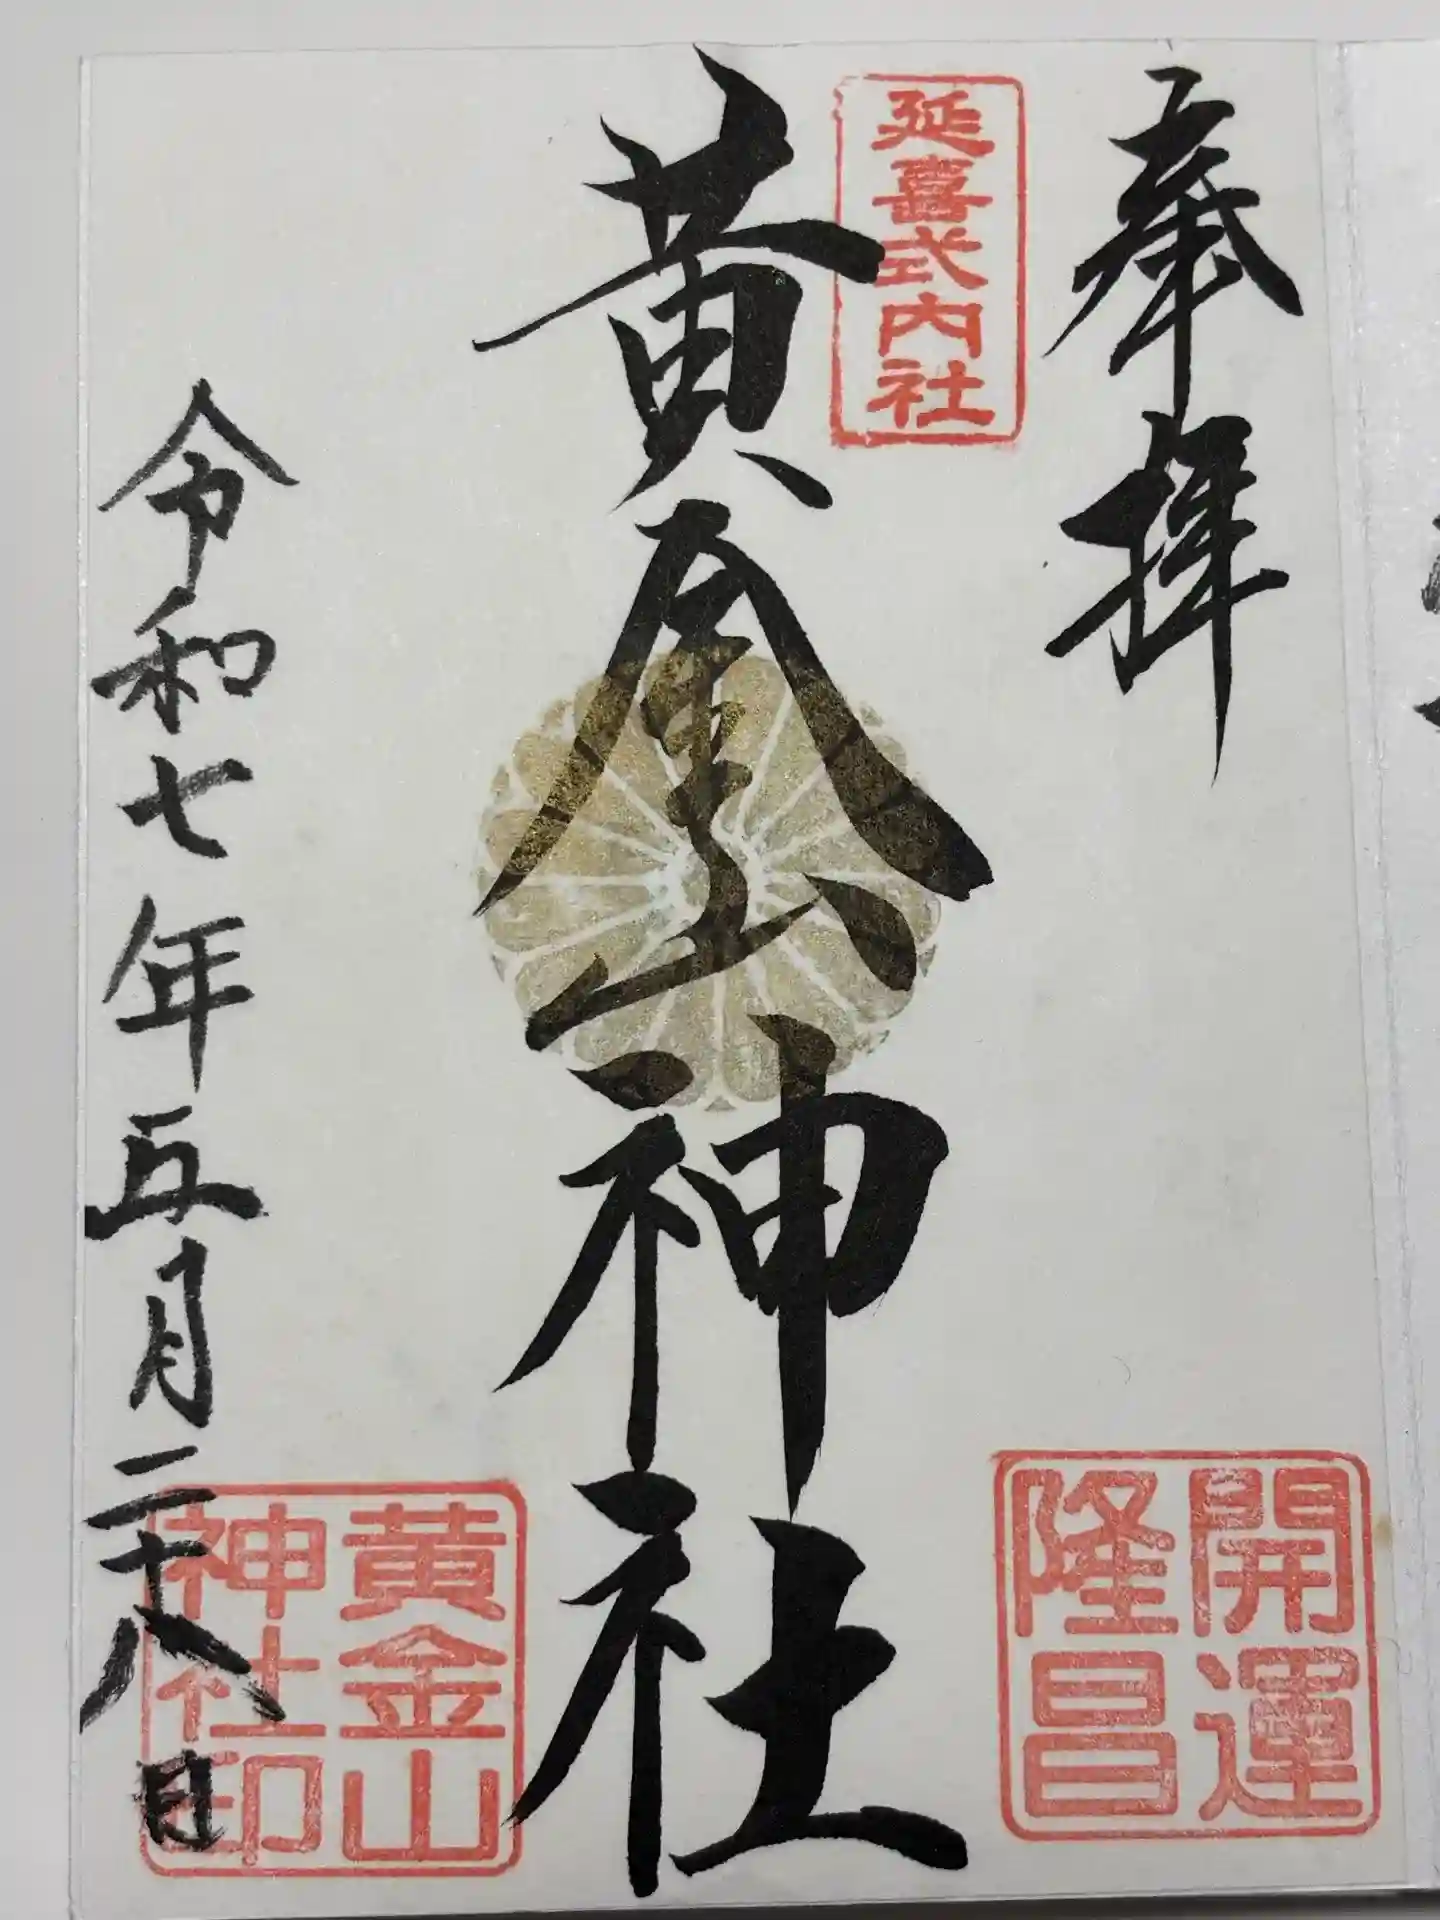 奉拝
延喜式内社
開運
隆昌
黄金神社
令和七年五月二十八日
黄金山
神社印